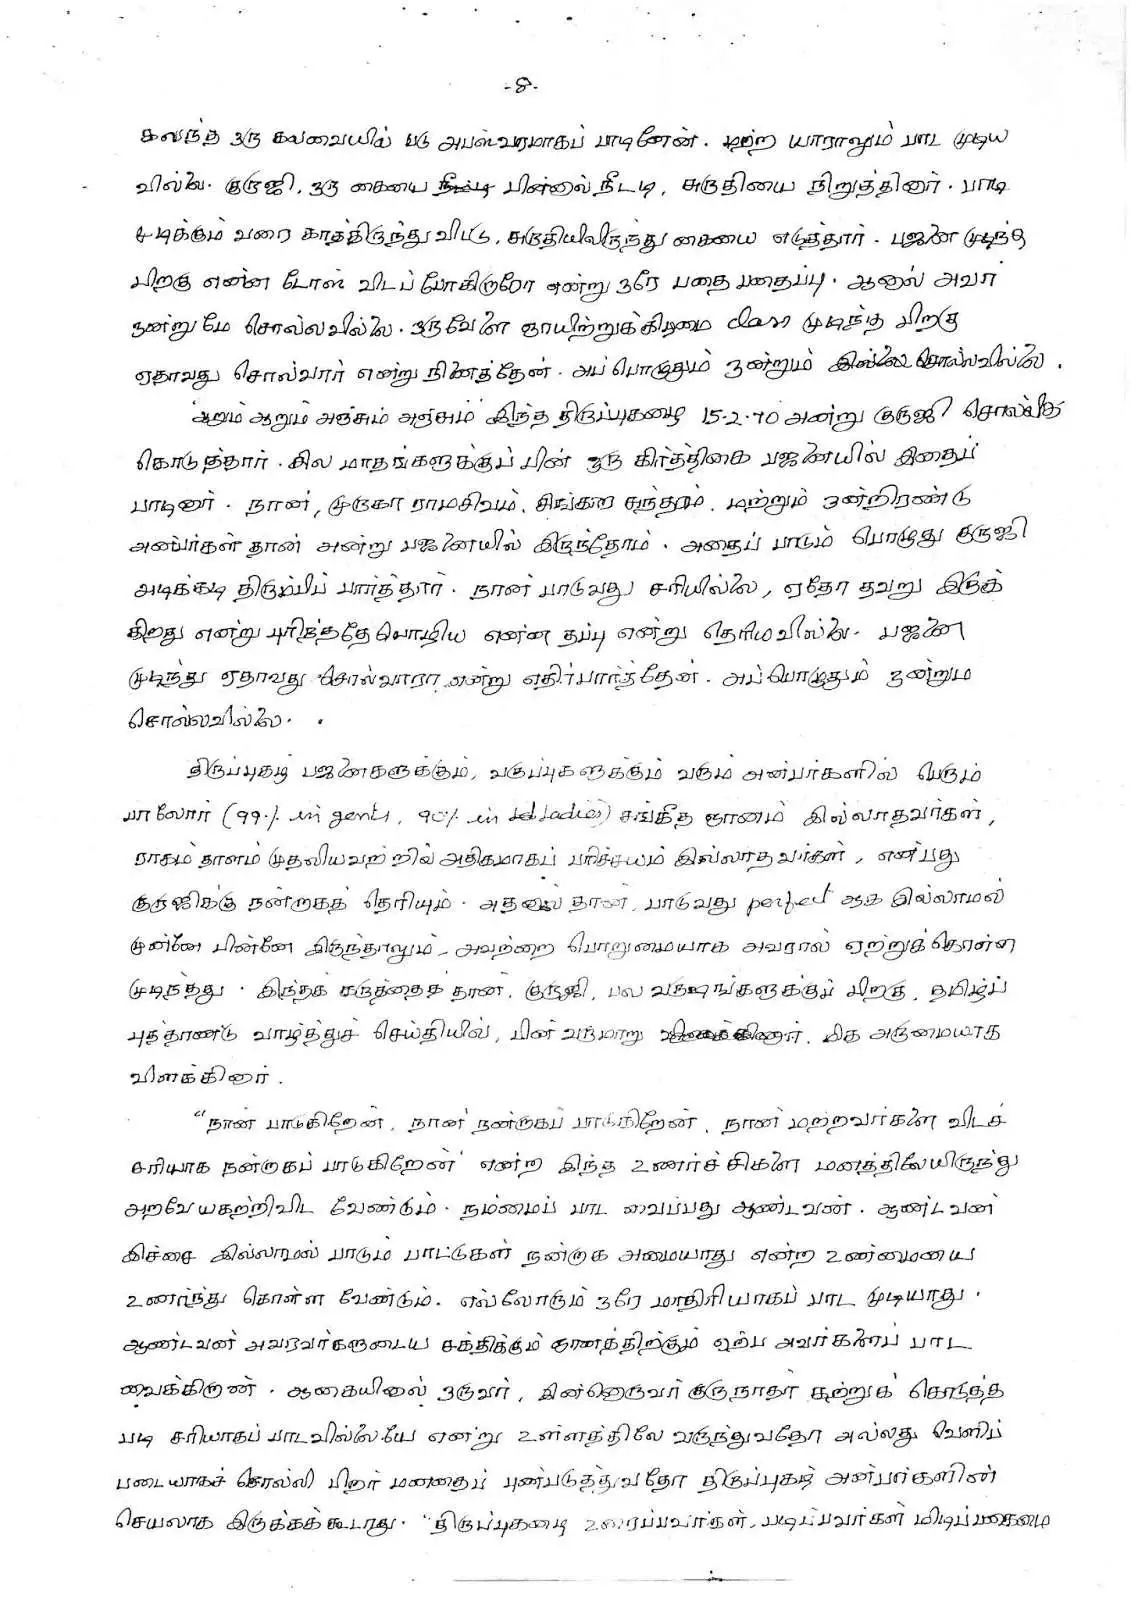 -8-
கலந்த ஒரு கலவையில் படு அபஸ்வரமாகப் பாடினேன். மற்ற யாராலும் பாட முடிய
வில்லை. குருஜி, ஒரு கையை பின்னால் நீட்டி, சுருதியை நிறுத்தினார். பாடி
முடிக்கும் வரை காத்திருந்து விட்டு, சுருதியிலிருந்து கையை எடுத்தார். பஜனை முடிந்த
பிறகு என்ன டோஸ் விடப் போகிறாரோ என்று ஒரே பதை பதைப்பு. ஆனால் அவர்
ஒன்றுமே சொல்லவில்லை. ஒருவேளை ஞாயிற்றுக்கிழமை class முடிந்த பிறகு
ஏதாவது சொல்வார் என்று நினைத்தேன். அப்பொழுதும் ஒன்றும் சொல்லவில்லை.
ஆறும் ஆறும் அஞ்சும் அஞ்சும் இந்த திருப்புகழை 15-2-70 அன்று குருஜி சொல்லிக்
கொடுத்தார். சில மாதங்களுக்குப் பின் ஒரு கிர்த்திகை பஜனையில் இதைப்
பாடினார். நான், முருகா ராமசிவம், சிங்கார சுந்தரம், மற்றும் ஒன்றிரண்டு
அன்பர்கள் தான் அன்று பஜனையில் இருந்தோம். அதைப் பாடும் பொழுது குருஜி
அடிக்கடி திரும்பிப் பார்த்தார். நான் பாடுவது சரியில்லை, ஏதோ தவறு இருக்
கிறது என்று புரிந்ததே யொழிய என்ன தப்பு என்று தெரியவில்லை. பஜனை
முடிந்து ஏதாவது சொல்வாரா என்று எதிர்பார்த்தேன். அப்பொழுதும் ஒன்றும்
சொல்லவில்லை.
திருப்புகழ் பஜனைகளுக்கும், வகுப்புகளுக்கும் வரும் அன்பர்களில் பெரும்
பாலோர் (99% in gents, 90% in ladies) சங்கீத ஞானம் இல்லாதவர்கள்,
ராகம் தாளம் முதலியவற்றில் அதிகமாகப் பரிச்சயம் இல்லாதவர்கள், என்பது
குருஜிக்கு நன்றாகத் தெரியும். அதனால் தான், பாடுவது perfect ஆக இல்லாமல்
முன்னே பின்னே இருந்தாலும், அவற்றை பொறுமையாக அவரால் ஏற்றுக்கொள்ள
முடிந்தது. இந்தக் கருத்தைத் தான், குருஜி, பல வருஷங்களுக்குப் பிறகு, தமிழ்ப்
புத்தாண்டு வாழ்த்துச் செய்தியில், பின் வருமாறு மிக அருமையாக
விளக்கினார்.
"நான் பாடுகிறேன், நான் நன்றாகப் பாடுகிறேன், நான் மற்றவர்களை விடச்
சரியாக நன்றாகப் பாடுகிறேன்' என்ற இந்த உணர்ச்சிகளை மனத்திலேயிருந்து
அறவேயகற்றிவிட வேண்டும். நம்மைப் பாட வைப்பது ஆண்டவன். ஆண்டவன்
இச்சை இல்லாமல் பாடும் பாட்டுகள் நன்றாக அமையாது என்ற உண்மையை
உணர்ந்து கொள்ள வேண்டும். எல்லோரும் ஒரே மாதிரியாகப் பாட முடியாது.
ஆண்டவன் அவரவர்களுடைய சக்திக்கும் ஞானத்திற்கும் ஏற்ப அவர்களைப் பாட
வைக்கிறான். ஆகையினாலே ஒருவர், இன்னொருவர் குருநாதர் கற்றுக் கொடுத்த
படி சரியாகப் பாடவில்லையே என்று உள்ளத்திலே வருந்துவதோ அல்லது வெளிப்
படையாகச் சொல்லி பிறர் மனதைப் புண்படுத்துவதோ திருப்புகழ் அன்பர்களின்
செயலாக இருக்கக்கூடாது. "திருப்புகழை உரைப்பவர்கள், படிப்பவர்கள் மிடிப்பகைமை